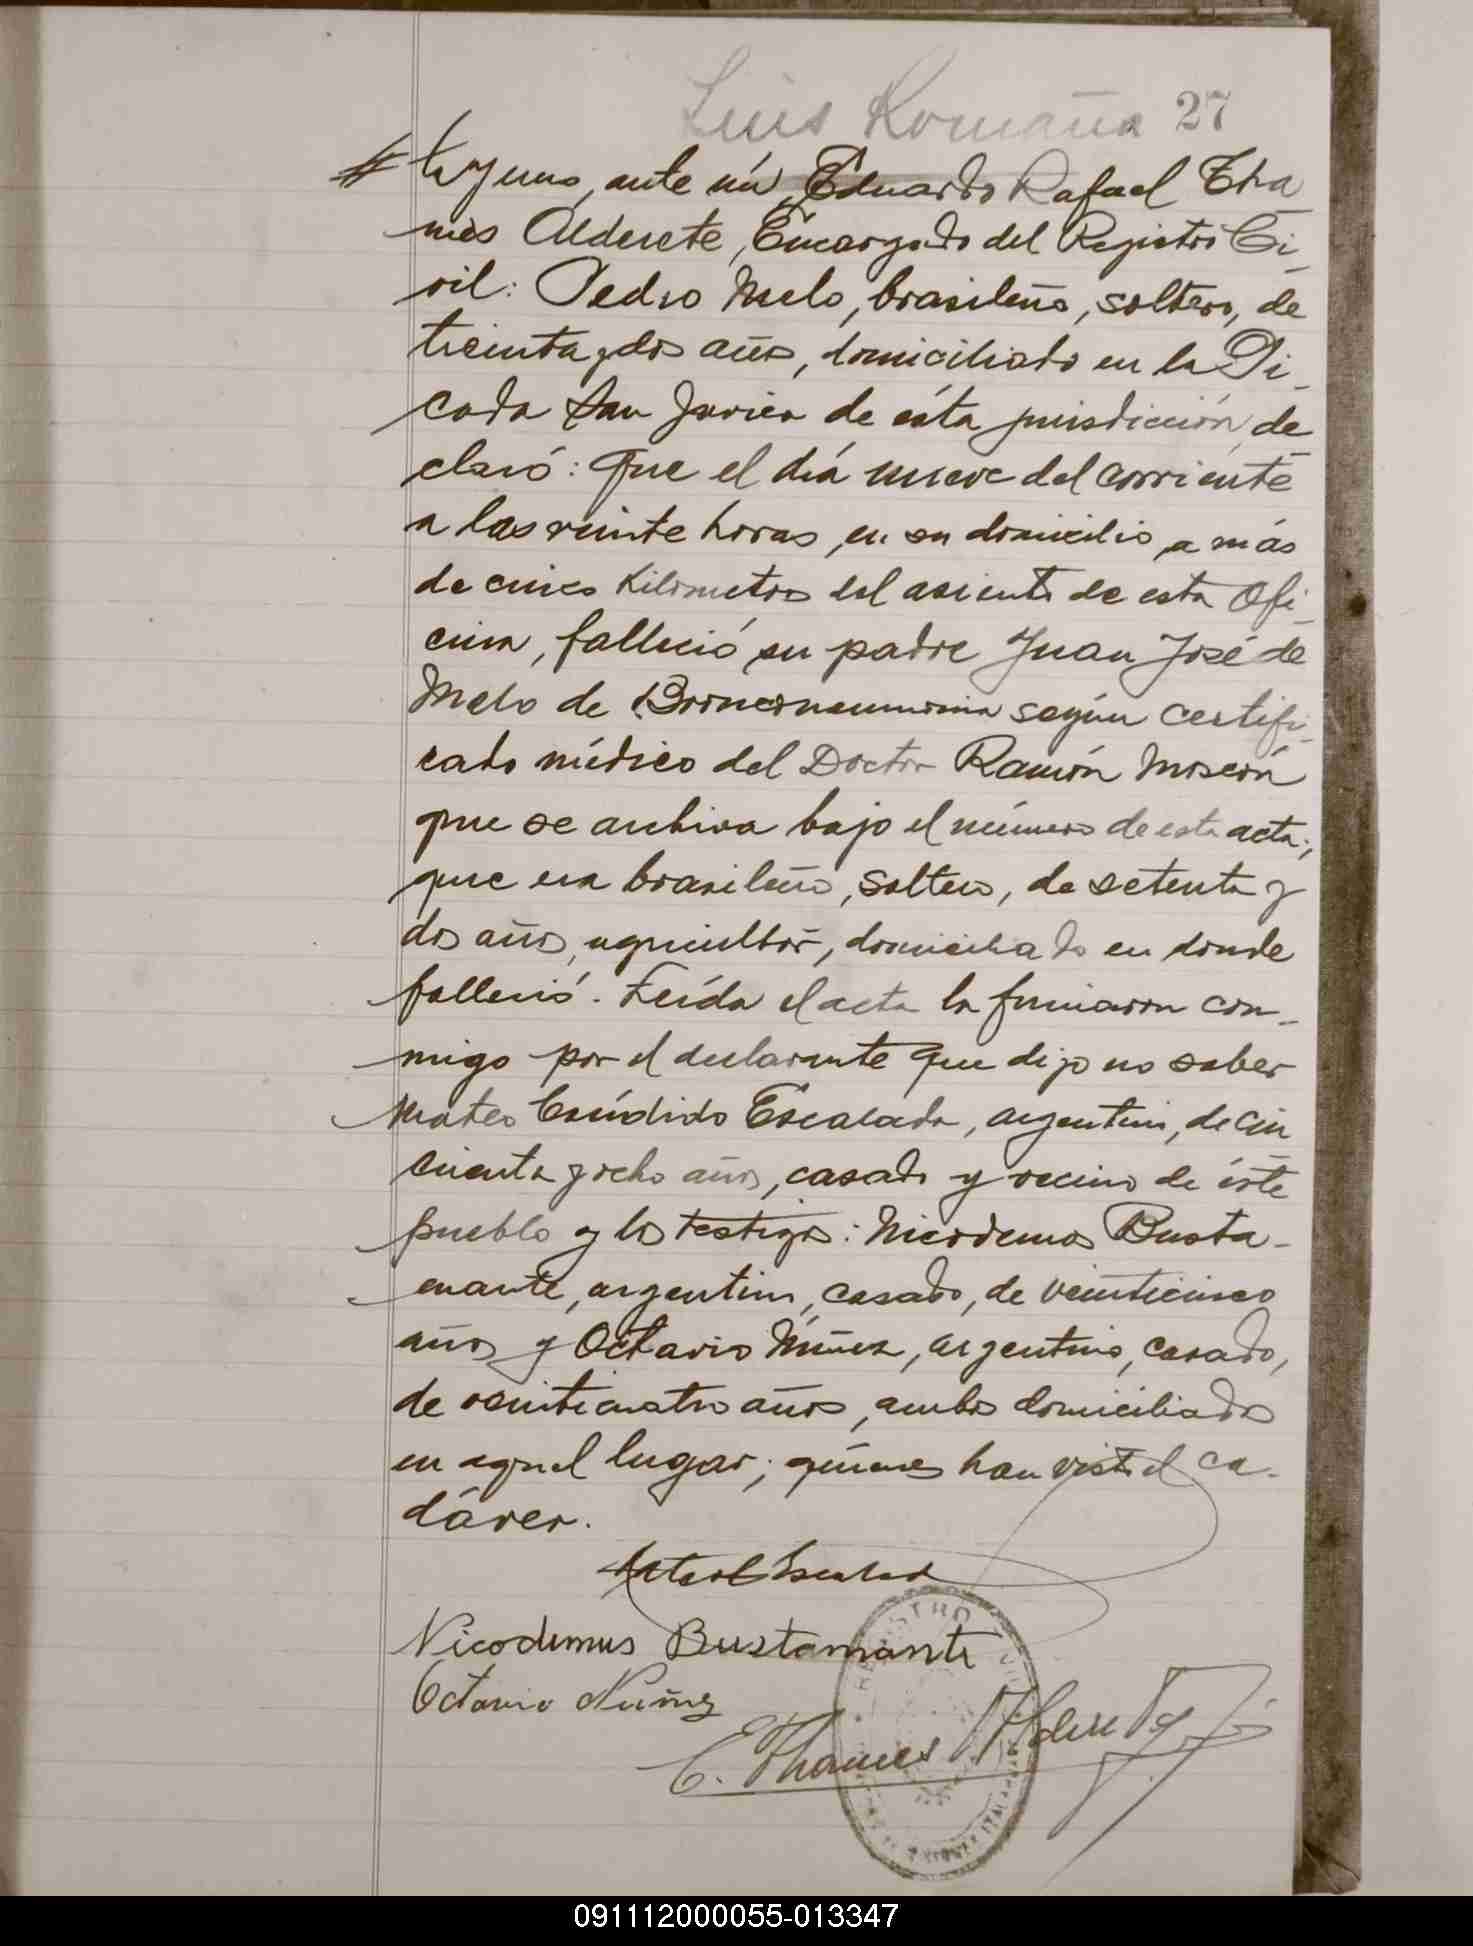 Luis Romaña 27
ta y uno, ante mí, Eduardo Rafael Tha
mes Alderete, Encargado del Registro Ci-
vil: Pedro Melo, brasileño, soltero, de
treinta y dos años, domiciliado en la Pi-
cada San Javier de ésta jurisdicción, de
claró: Que el día nueve del corriente
a las veinte horas, en su domicilio, a más
de cinco Kilometros del asiento de esta Ofi-
cina, falleció su padre Juan José de
Melo de Bronconeumonia según certifi-
cado médico del Doctor Ramón Moscón
que se archiva bajo el número de esta acta;
que era brasileño, soltero, de setenta y
dos años, agricultor, domiciliado en donde
falleció. Leída el acta la firmaron con-
migo por el declarante que dijo no saber
Mateo Cándido Escalada, argentino, de cin
cuenta y ocho años, casado y vecino de éste
pueblo y los testigos: Nicodemos Busta-
mante, argentino, casado, de veinticinco
años y Octavio Núñez, argentino, casado,
de veinticuatro años, ambos domiciliados
en aquel lugar; quienes han visto el ca-
dáver.
Mateo C Escalada
Nicodemus Bustamante
Octavio Nuñez
E. Thames Alderete
REGISTRO CIVIL
091112000055-013347